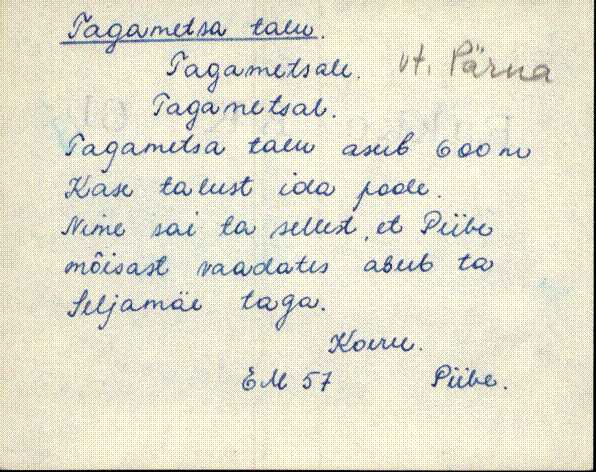 Tagametsa talu.
Tagametsale. vt. Pärna
Tagametsal.
Tagametsa talu asub 600 m
Kase talust ida poole.
Nime sai ta sellest, et Piibe
mõisast vaadates asub ta
Seljamäe taga.
Koeru.
EM 57 Piibe.